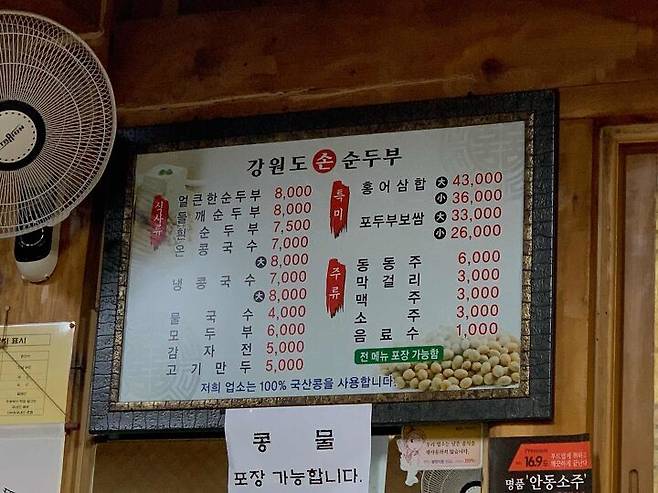 강원도 손 순두부
식사류
얼큰한순두부 8,000
들깨순두부 8,000
흰순두부 7,500
온콩국수 7,000
大 8,000
냉콩국수 7,000
大 8,000
물국수 4,000
모두부 6,000
감자전 5,000
고기만두 5,000
특미
홍어삼합 大 43,000
小 36,000
포두부보쌈 大 33,000
小 26,000
주류
동동주 6,000
막걸리 3,000
맥주 3,000
소주 3,000
음료수 1,000
전 메뉴 포장 가능함
저희 업소는 100% 국산콩을 사용합니다.
콩 물
포장 가능합니다.
표시
Premium
16.9
부드럽게 취하고
깨끗하게 끝난다
명품 '안동소주'